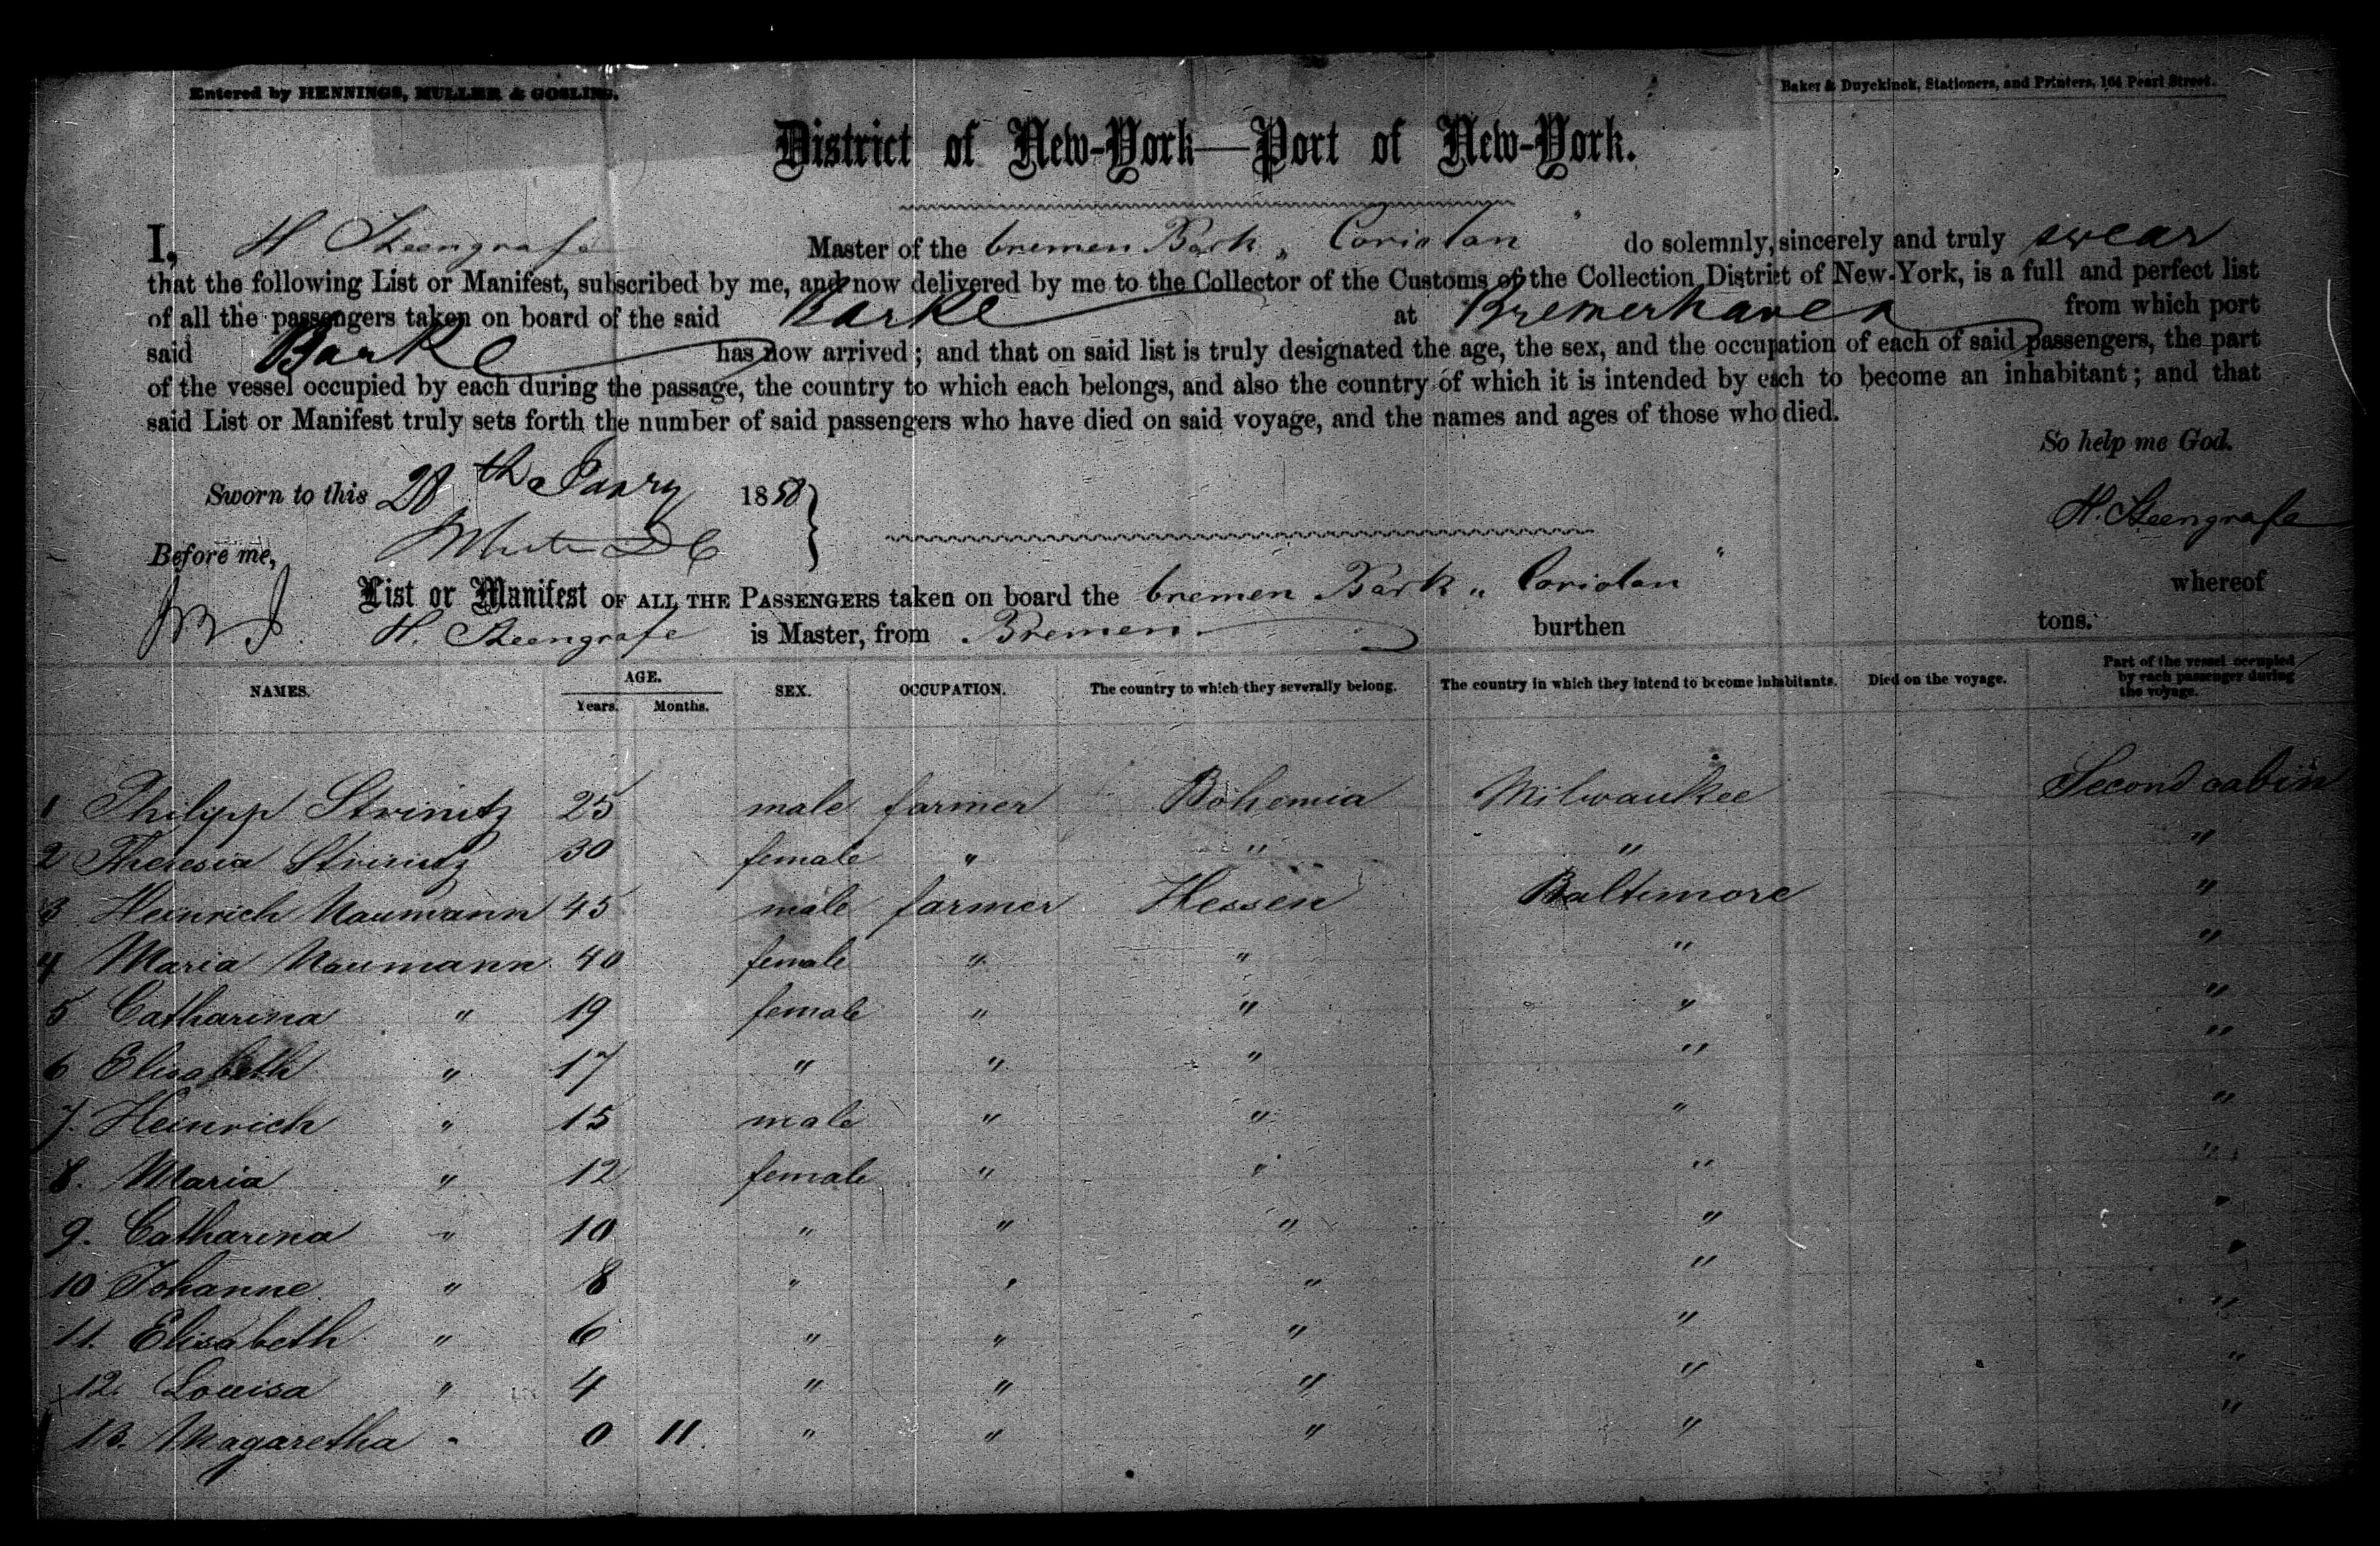 Entered by HENNINGS, MULLER & GOSLING.
Baker & Duyckinck, Stationers, and Printers, 164 Pearl Street.
District of New-York—Port of New-York.
I, H Steengrafe Master of the bremen Bark „ Coriolan " do solemnly, sincerely and truly swear
that the following List or Manifest, subscribed by me, and now delivered by me to the Collector of the Customs of the Collection District of New-York, is a full and perfect list
of all the passengers taken on board of the said Barke at Bremerhaven from which port
said Barke has now arrived; and that on said list is truly designated the age, the sex, and the occupation of each of said passengers, the part
of the vessel occupied by each during the passage, the country to which each belongs, and also the country of which it is intended by each to become an inhabitant; and that
said List or Manifest truly sets forth the number of said passengers who have died on said voyage, and the names and ages of those who died.
So help me God.
Sworn to this 28th Janry 1858
H. Steengrafe
Before me, White D C
List or Manifest OF ALL THE PASSENGERS taken on board the bremen Bark „ Coriolan " whereof
H. Steengrafe is Master, from Bremen burthen tons.
NAMES. AGE. Years. Months. SEX. OCCUPATION. The country to which they severally belong. The country in which they intend to become inhabitants. Died on the voyage. Part of the vessel occupied by each passenger during the voyage.
1 Philipp Strinitz 25 male farmer Bohemia Milwaukee Second cabin
2 Theresia Strinitz 30 female " " " "
3 Heinrich Naumann 45 male farmer Hessen Baltimore "
4 Maria Naumann 40 female " " " "
5 Catharina " 19 female " " " "
6 Elisabeth " 17 " " " " "
7. Heinrich " 15 male " " " "
8. Maria " 12 female " " " "
9. Catharina " 10 " " " " "
10 Johanne " 8 " " " " "
11. Elisabeth " 6 " " " " "
12. Louisa " 4 " " " " "
13. Magaretha " 0 11. " " " " "